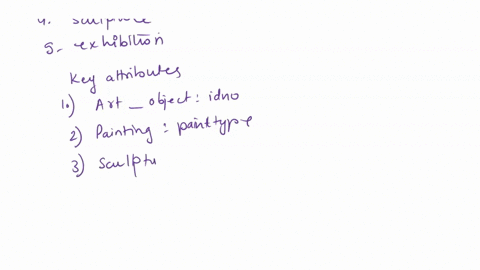 4. sculpture
5. exhibition
Key attributes
1.) Art _ object : idno
2) Painting : painttype
3) Sculptu